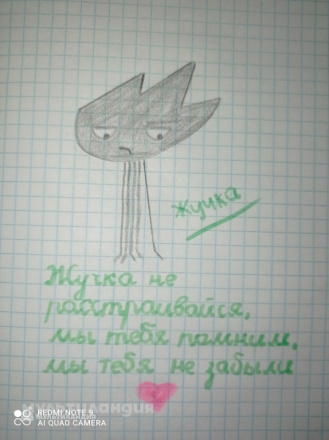 Жучка
Жучка не
расстраивайся,
мы тебя помним,
мы тебя не забыли
МУЛЬТИЛАНДИЯ
REDMI NOTE 9
AI QUAD CAMERA